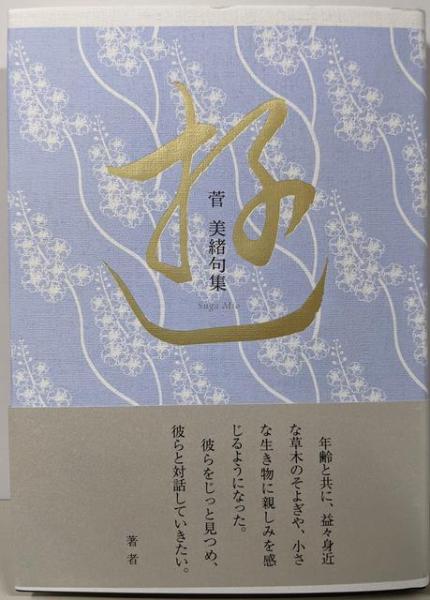 遊
菅 美緒句集
Suga Mio
年齢と共に、益々身近
な草木のそよぎや、小さ
な生き物に親しみを感
じるようになった。
彼らをじっと見つめ、
彼らと対話していきたい。
著者